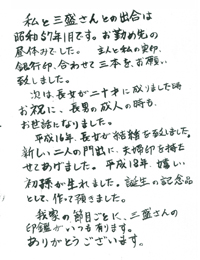 私と三盛さんとの出合は
昭和57年1月です。お勤め先の
昼休みでした。 主人と私の実印、
銀行印、合わせて三本をお願い
致しました。
次は、長女が二十才に成りました時
お祝に、長男の成人の時も、
お世話になりました。
平成16年、長女が結婚を致しました。
新しい二人の門出に、夫婦印を持た
せてあげました。平成18年、嬉しい
初孫が生れました。誕生の記念品
として、作って頂きました。
我家の節目ごとに、三盛さんの
印鑑がいつも有ります。
ありがとうございます。